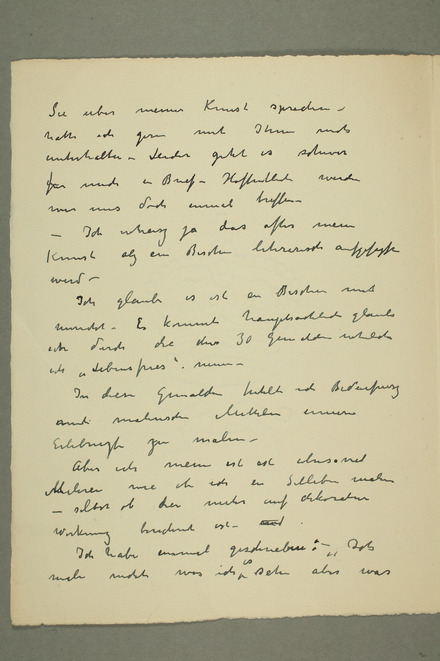 Sie über meine Kunst sprechen –
hatte ich gern mit Ihnen mich
unterhalten – Leider geht es schwer
für mich in Brief – Hoffentlich werden
wir uns doch einmal treffen –
– Ich weiss ja das ofters meine
Kunst als ein Bischen literarisch aufgefasst
wird –
Ich glaube es ist ein Bischen mit
Es kommt hauptsachlich glaube
ich durch die 30 Gemalden welche
ich „Lebensfries“ nenn –
In diese Gemalden fuhlte ich Bedurfniss
mit malerischen Mitteln innere
Erlebnisse zu malen –
Aber ich meine es ist
Malerei wie ob ich ein Stilleben malen
– selbst ob der nicht auf dekorative
Workung berechnet ist –
Ich habe einmal geschrieben: – „Ich
male nicht was ich sehe aber was